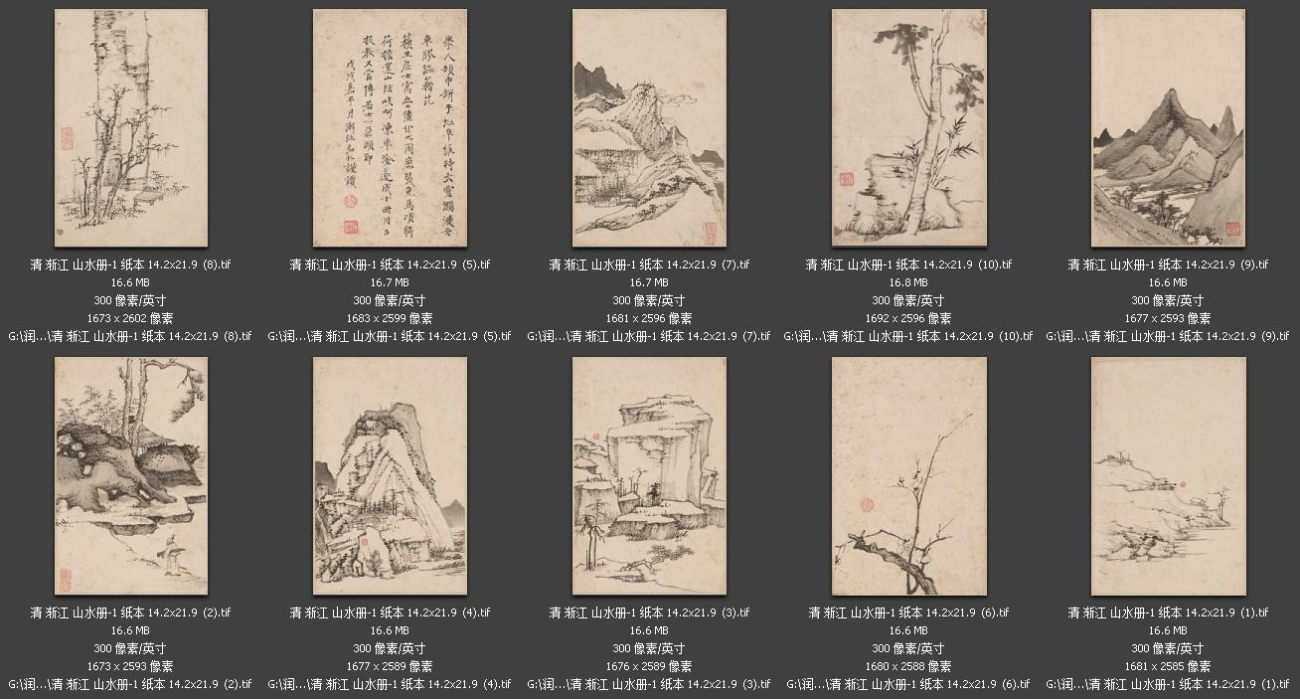 戊戌嘉平月
清 渐江 山水册-1 纸本 14.2x21.9 (8).tif
16.6 MB
300 像素/英寸
1673 x 2602 像素
G:\润...\清 渐江 山水册-1 纸本 14.2x21.9 (8).tif
清 渐江 山水册-1 纸本 14.2x21.9 (5).tif
16.7 MB
300 像素/英寸
1683 x 2599 像素
G:\润...\清 渐江 山水册-1 纸本 14.2x21.9 (5).tif
清 渐江 山水册-1 纸本 14.2x21.9 (7).tif
16.7 MB
300 像素/英寸
1681 x 2596 像素
G:\润...\清 渐江 山水册-1 纸本 14.2x21.9 (7).tif
清 渐江 山水册-1 纸本 14.2x21.9 (10).tif
16.8 MB
300 像素/英寸
1692 x 2596 像素
G:\润...\清 渐江 山水册-1 纸本 14.2x21.9 (10).tif
清 渐江 山水册-1 纸本 14.2x21.9 (9).tif
16.6 MB
300 像素/英寸
1677 x 2593 像素
G:\润...\清 渐江 山水册-1 纸本 14.2x21.9 (9).tif
清 渐江 山水册-1 纸本 14.2x21.9 (2).tif
16.6 MB
300 像素/英寸
1673 x 2593 像素
G:\润...\清 渐江 山水册-1 纸本 14.2x21.9 (2).tif
清 渐江 山水册-1 纸本 14.2x21.9 (4).tif
16.6 MB
300 像素/英寸
1677 x 2589 像素
G:\润...\清 渐江 山水册-1 纸本 14.2x21.9 (4).tif
清 渐江 山水册-1 纸本 14.2x21.9 (3).tif
16.6 MB
300 像素/英寸
1676 x 2589 像素
G:\润...\清 渐江 山水册-1 纸本 14.2x21.9 (3).tif
清 渐江 山水册-1 纸本 14.2x21.9 (6).tif
16.6 MB
300 像素/英寸
1680 x 2588 像素
G:\润...\清 渐江 山水册-1 纸本 14.2x21.9 (6).tif
清 渐江 山水册-1 纸本 14.2x21.9 (1).tif
16.6 MB
300 像素/英寸
1681 x 2585 像素
G:\润...\清 渐江 山水册-1 纸本 14.2x21.9 (1).tif